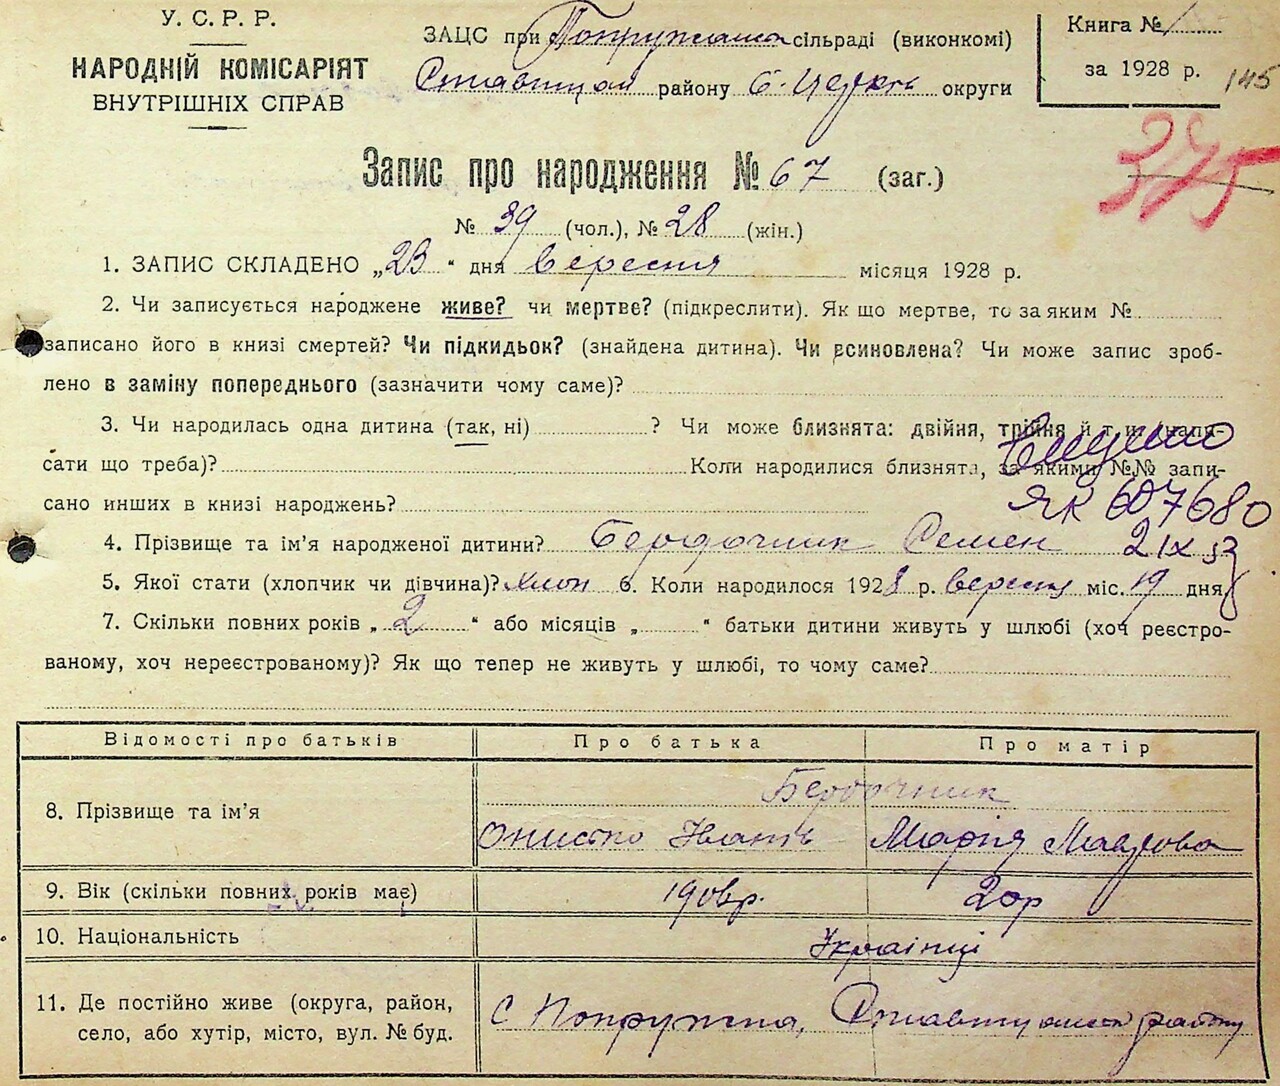 У. С. Р. Р.
НАРОДНІЙ КОМІСАРІЯТ
ВНУТРІШНІХ СПРАВ
ЗАЦС при сільраді (виконкомі)
району Б. Церкв округи
Книга № 1
за 1928 р.
145
375
Запис про народження № 67 (заг.)
№ 39 (чол.), № 28 (жін.)
1. ЗАПИС СКЛАДЕНО „23“ дня вересня місяця 1928 р.
2. Чи записується народжене живе? чи мертве? (підкреслити). Як що мертве, то за яким №
записано його в книзі смертей? Чи підкидьок? (знайдена дитина). Чи всиновлена? Чи може запис зроб-
лено в заміну попереднього (зазначити чому саме)?
3. Чи народилась одна дитина (так, ні) ? Чи може близнята: двійня, трійня й т. и. (напи-
сати що треба)? Коли народилися близнята, за якими №№ запи-
сано инших в книзі народжень?
ЯК 607680
4. Прізвище та ім’я народженої дитини? Бердочник Семен 2 IX 53
5. Якої стати (хлопчик чи дівчина)? хлоп 6. Коли народилося 1928 р. вересня міс. 19 дня
7. Скільки повних років „2“ або місяців „ “ батьки дитини живуть у шлюбі (хоч реєстро-
ваному, хоч нереєстрованому)? Як що тепер не живуть у шлюбі, то чому саме?
Відомості про батьків Про батька Про матір
8. Прізвище та ім’я Бердочник
Онисько Іванів Марія
9. Вік (скільки повних років має) 20р
10. Національність Українці
11. Де постійно живе (округа, район,
село, або хутір, місто, вул. № буд.
С Попружна, району